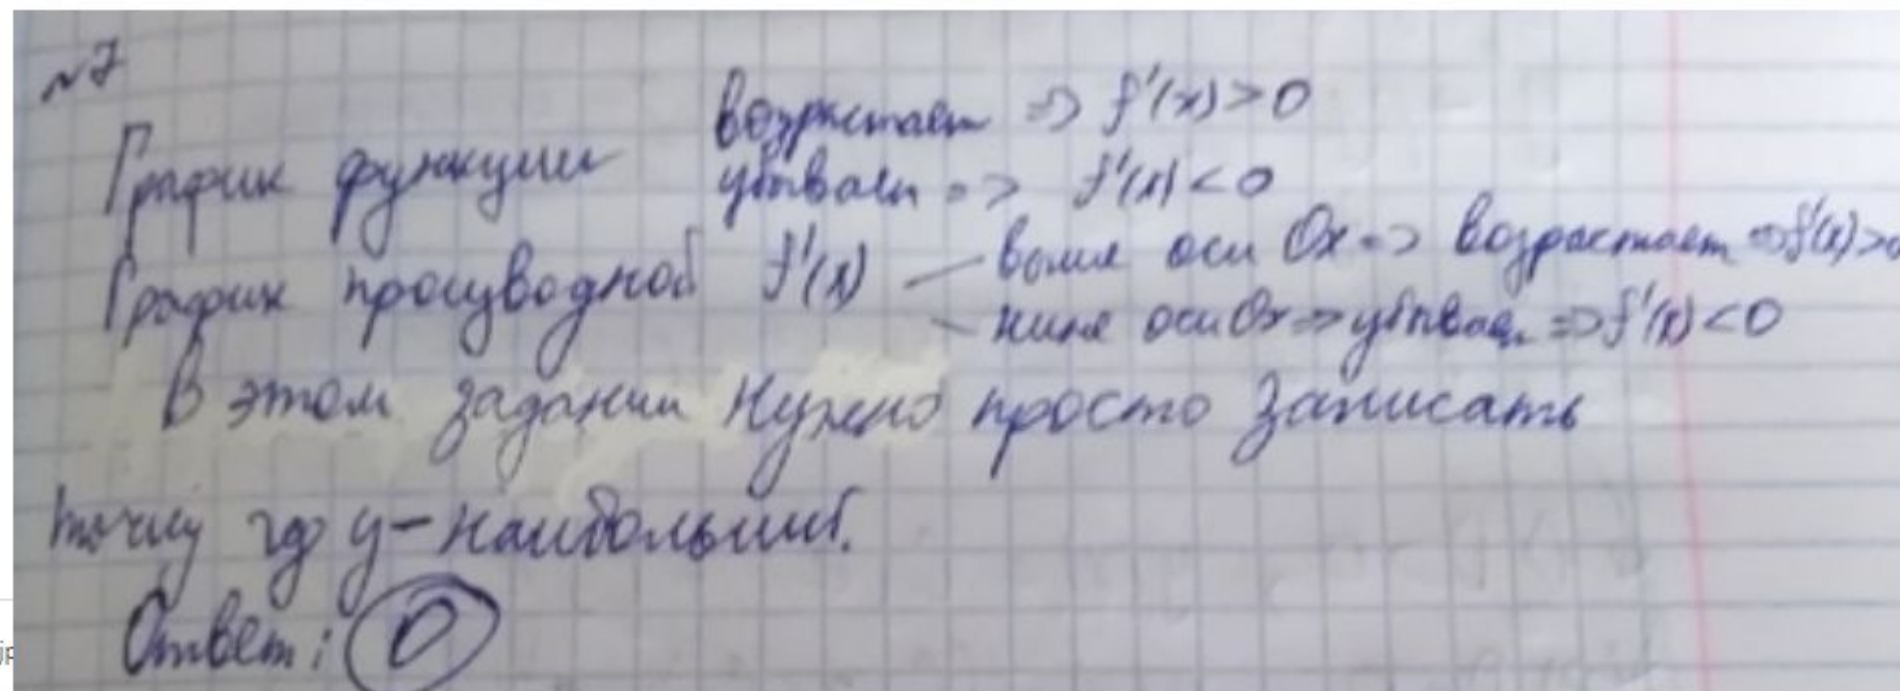 №7
возрастает => f'(x)>0
График функции
убывает => f'(x)<0
График производной f'(x) — выше оси Ox => возрастает => f'(x)>0
ниже оси Ox => убывает => f'(x)<0
В этом задании нужно просто записать
точку гд y-наибольший.
Ответ: 0